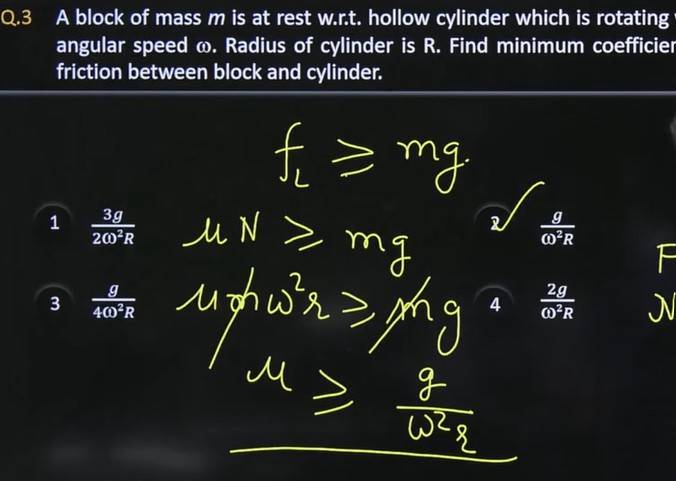 Q.3 A block of mass m is at rest w.r.t. hollow cylinder which is rotating
angular speed ω. Radius of cylinder is R. Find minimum
friction between block and cylinder.
f_L ≥ mg.
1 3g/2ω²R
μN ≥ mg
2 g/ω²R
3 g/4ω²R
μmω²r ≥ mg
4 2g/ω²R
μ ≥ g/ω²r
F
N